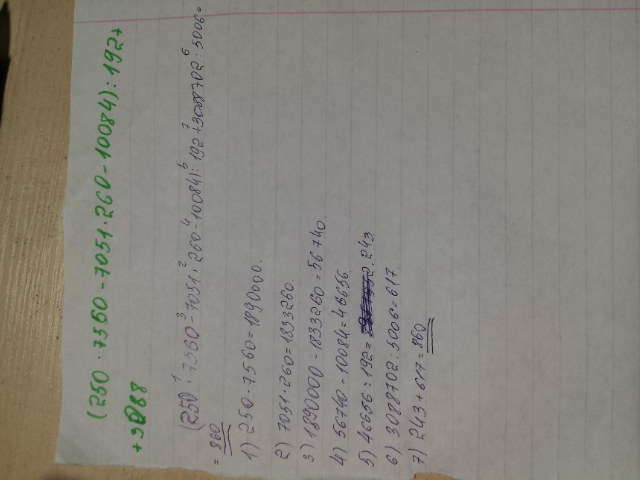 (250 · 7560 - 7051 · 260 - 10084) : 192 +
+ 3088
(250 · 7560 - 7051 · 260 - 10084) : 192 + 3088702 : 5006 =
= 860
1) 250 · 7560 = 1890000.
2) 7051 · 260 = 1833260.
3) 1890000 - 1833260 = 56740.
4) 56740 - 10084 = 46656
5) 46656 : 192 = 243
6) 3088702 : 5006 = 617
7) 243 + 617 = 860